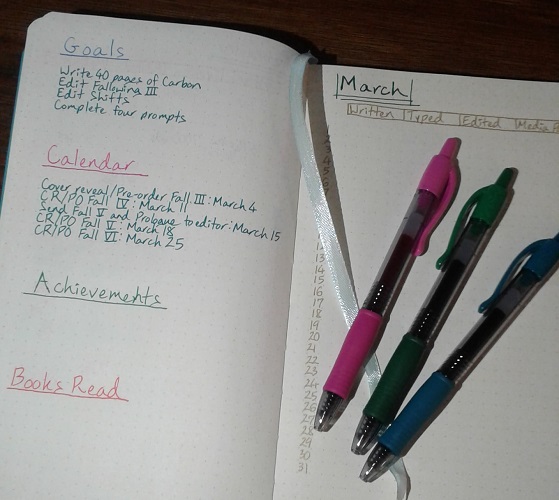 Goals
Write 40 pages of Carbon
Edit Fallowing III
Edit Shifts
Complete four prompts
Calendar
Cover reveal/Pre-order Fall III: March 4
CR/PO Fall IV: March 11
Send Fall V and Probque to editor: March 15
CR/PO Fall V: March 18
CR/PO Fall VI: March 25
Achievements
Books Read
March
Written Typed Edited Media
12
13
14
15
16
17
18
19
20
21
22
23
24
25
26
27
28
29
30
31